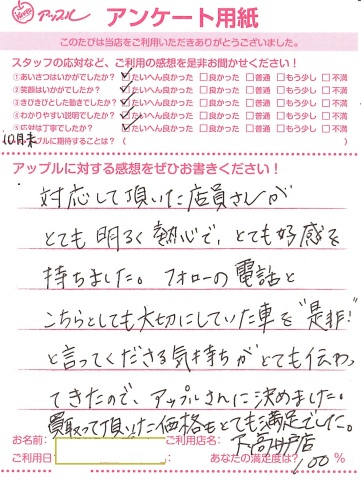 アップル アンケート用紙
このたびは当店をご利用いただきありがとうございました。
スタッフの応対など、ご利用の感想を是非お聞かせください!
①あいさつはいかがでしたか? ☑たいへん良かった □良かった □普通 □もう少し □不満
②笑顔はいかがでしたか? ☑たいへん良かった □良かった □普通 □もう少し □不満
③きびきびとした動きでしたか? ☑たいへん良かった □良かった □普通 □もう少し □不満
④わかりやすい説明でしたか? ☑たいへん良かった □良かった □普通 □もう少し □不満
⑤応対は丁寧でしたか? ☑たいへん良かった □良かった □普通 □もう少し □不満
10月末
プルに期待することは? (
アップルに対する感想をぜひお書きください!
対応して頂いた店員さんが
とても明るく熱心で、とても好感を
持ちました。フォローの電話と
こちらとしても大切にしていた車を"是非!"
と言ってくださる気持ちがとても伝わっ
てきたので、アップルさんに決めました。
買取って頂いた価格もとても満足でした。
お名前: ご利用店名: 下高井戸店
ご利用日 : あなたの満足度は? 100 %